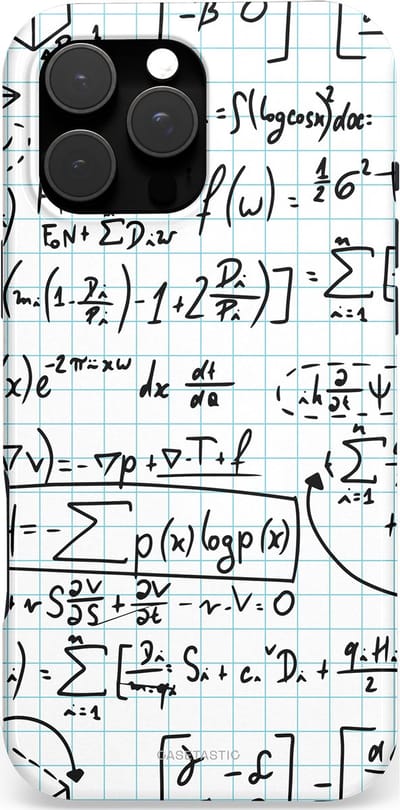 -β 0 ] [
= ∫(logcosx)²dx:
f(ω) = ½6²-
E₀N+ ΣDᵢω
(mᵢ(1-Dᵢ/Pᵢ)-1+2Dᵢ/Pᵢ)] = Σⁿᵢ₌₁ [
x)e^-2πixω dx dt/dQ iℏ∂/∂t Ψ
∇v)=-∇p+∇·T+f Σⁿᵢ₌₁
H=-Σ p(x)logp(x)
+ rS∂V/∂S + ∂V/∂t - r·V=0
) = Σⁿᵢ₌₁ [Dᵢ/m·qᵢ Sᵢ + cᵢ Dᵢ + qᵢHᵢ/2
CASETASTIC
[γ -δ] [α